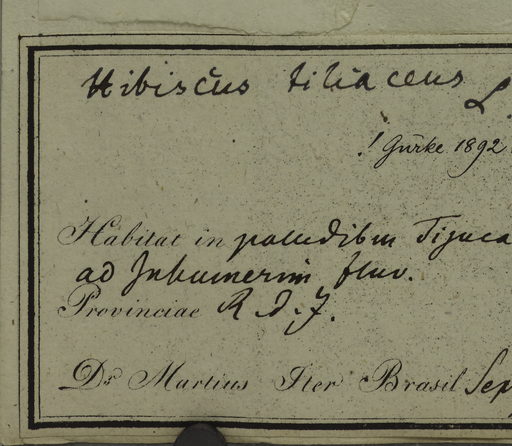 Hibiscus tiliaceus
L.
! Gürke 1892
Habitat in paludibus Tijuca
ad Inhumerim fluv.
Provinciae R. d. J.
Dr Martius Iter Brasil Sep